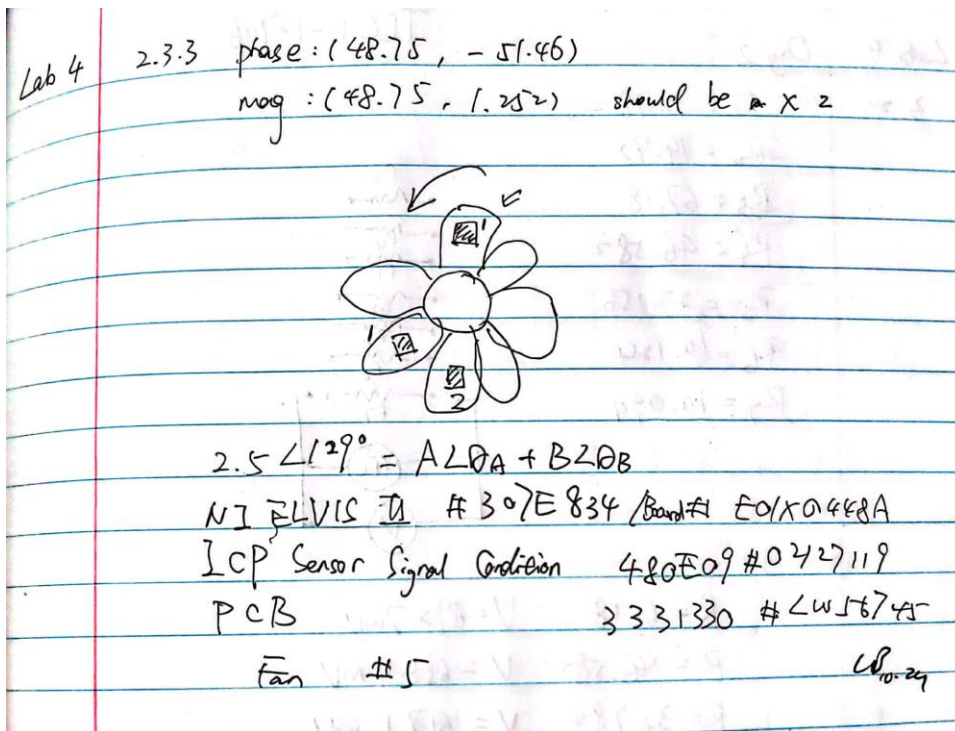 Lab 4 2.3.3 phase: (48.75, -51.46)
mag: (48.75, 1.252) should be x 2
1
1
2
2.5 ∠129° = A∠θA + B∠θB
NI ELVIS II #307E834 /Board#1 E01X0448A
ICP Sensor Signal Condition 480E09 #0427119
PCB 3331330 #LW56745
Fan #5
10.24